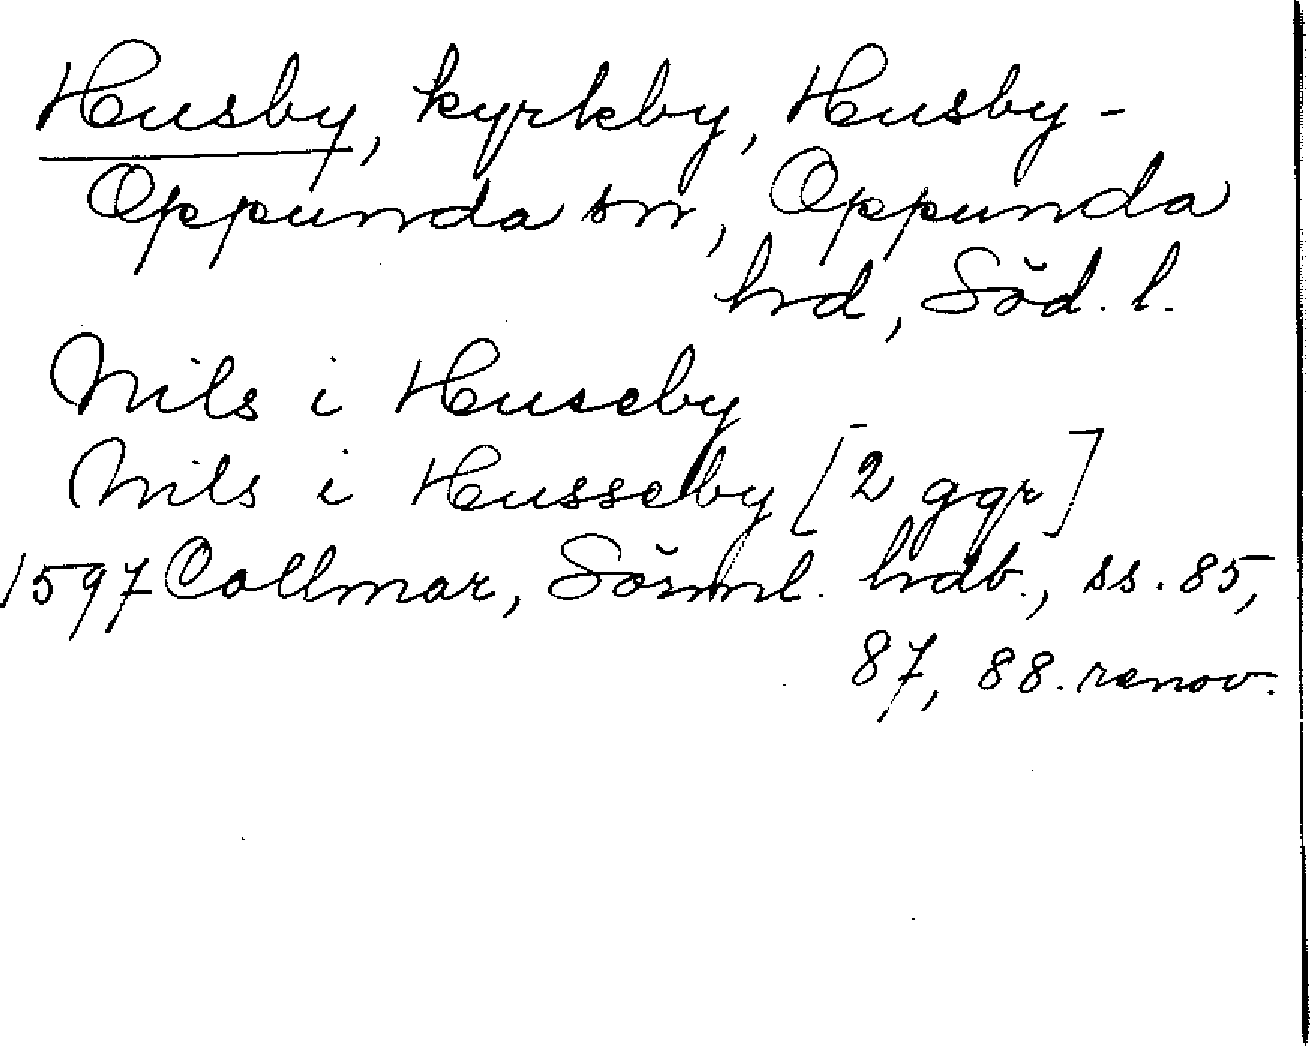 Husby, kyrkby, Husby-
Oppunda sn, Oppunda
hrd, Söd. l.
Nils i Huseby
Nils i Husseby [2 ggr]
1597 Collmar, Sörml. hdb., ss. 85,
87, 88. renov.